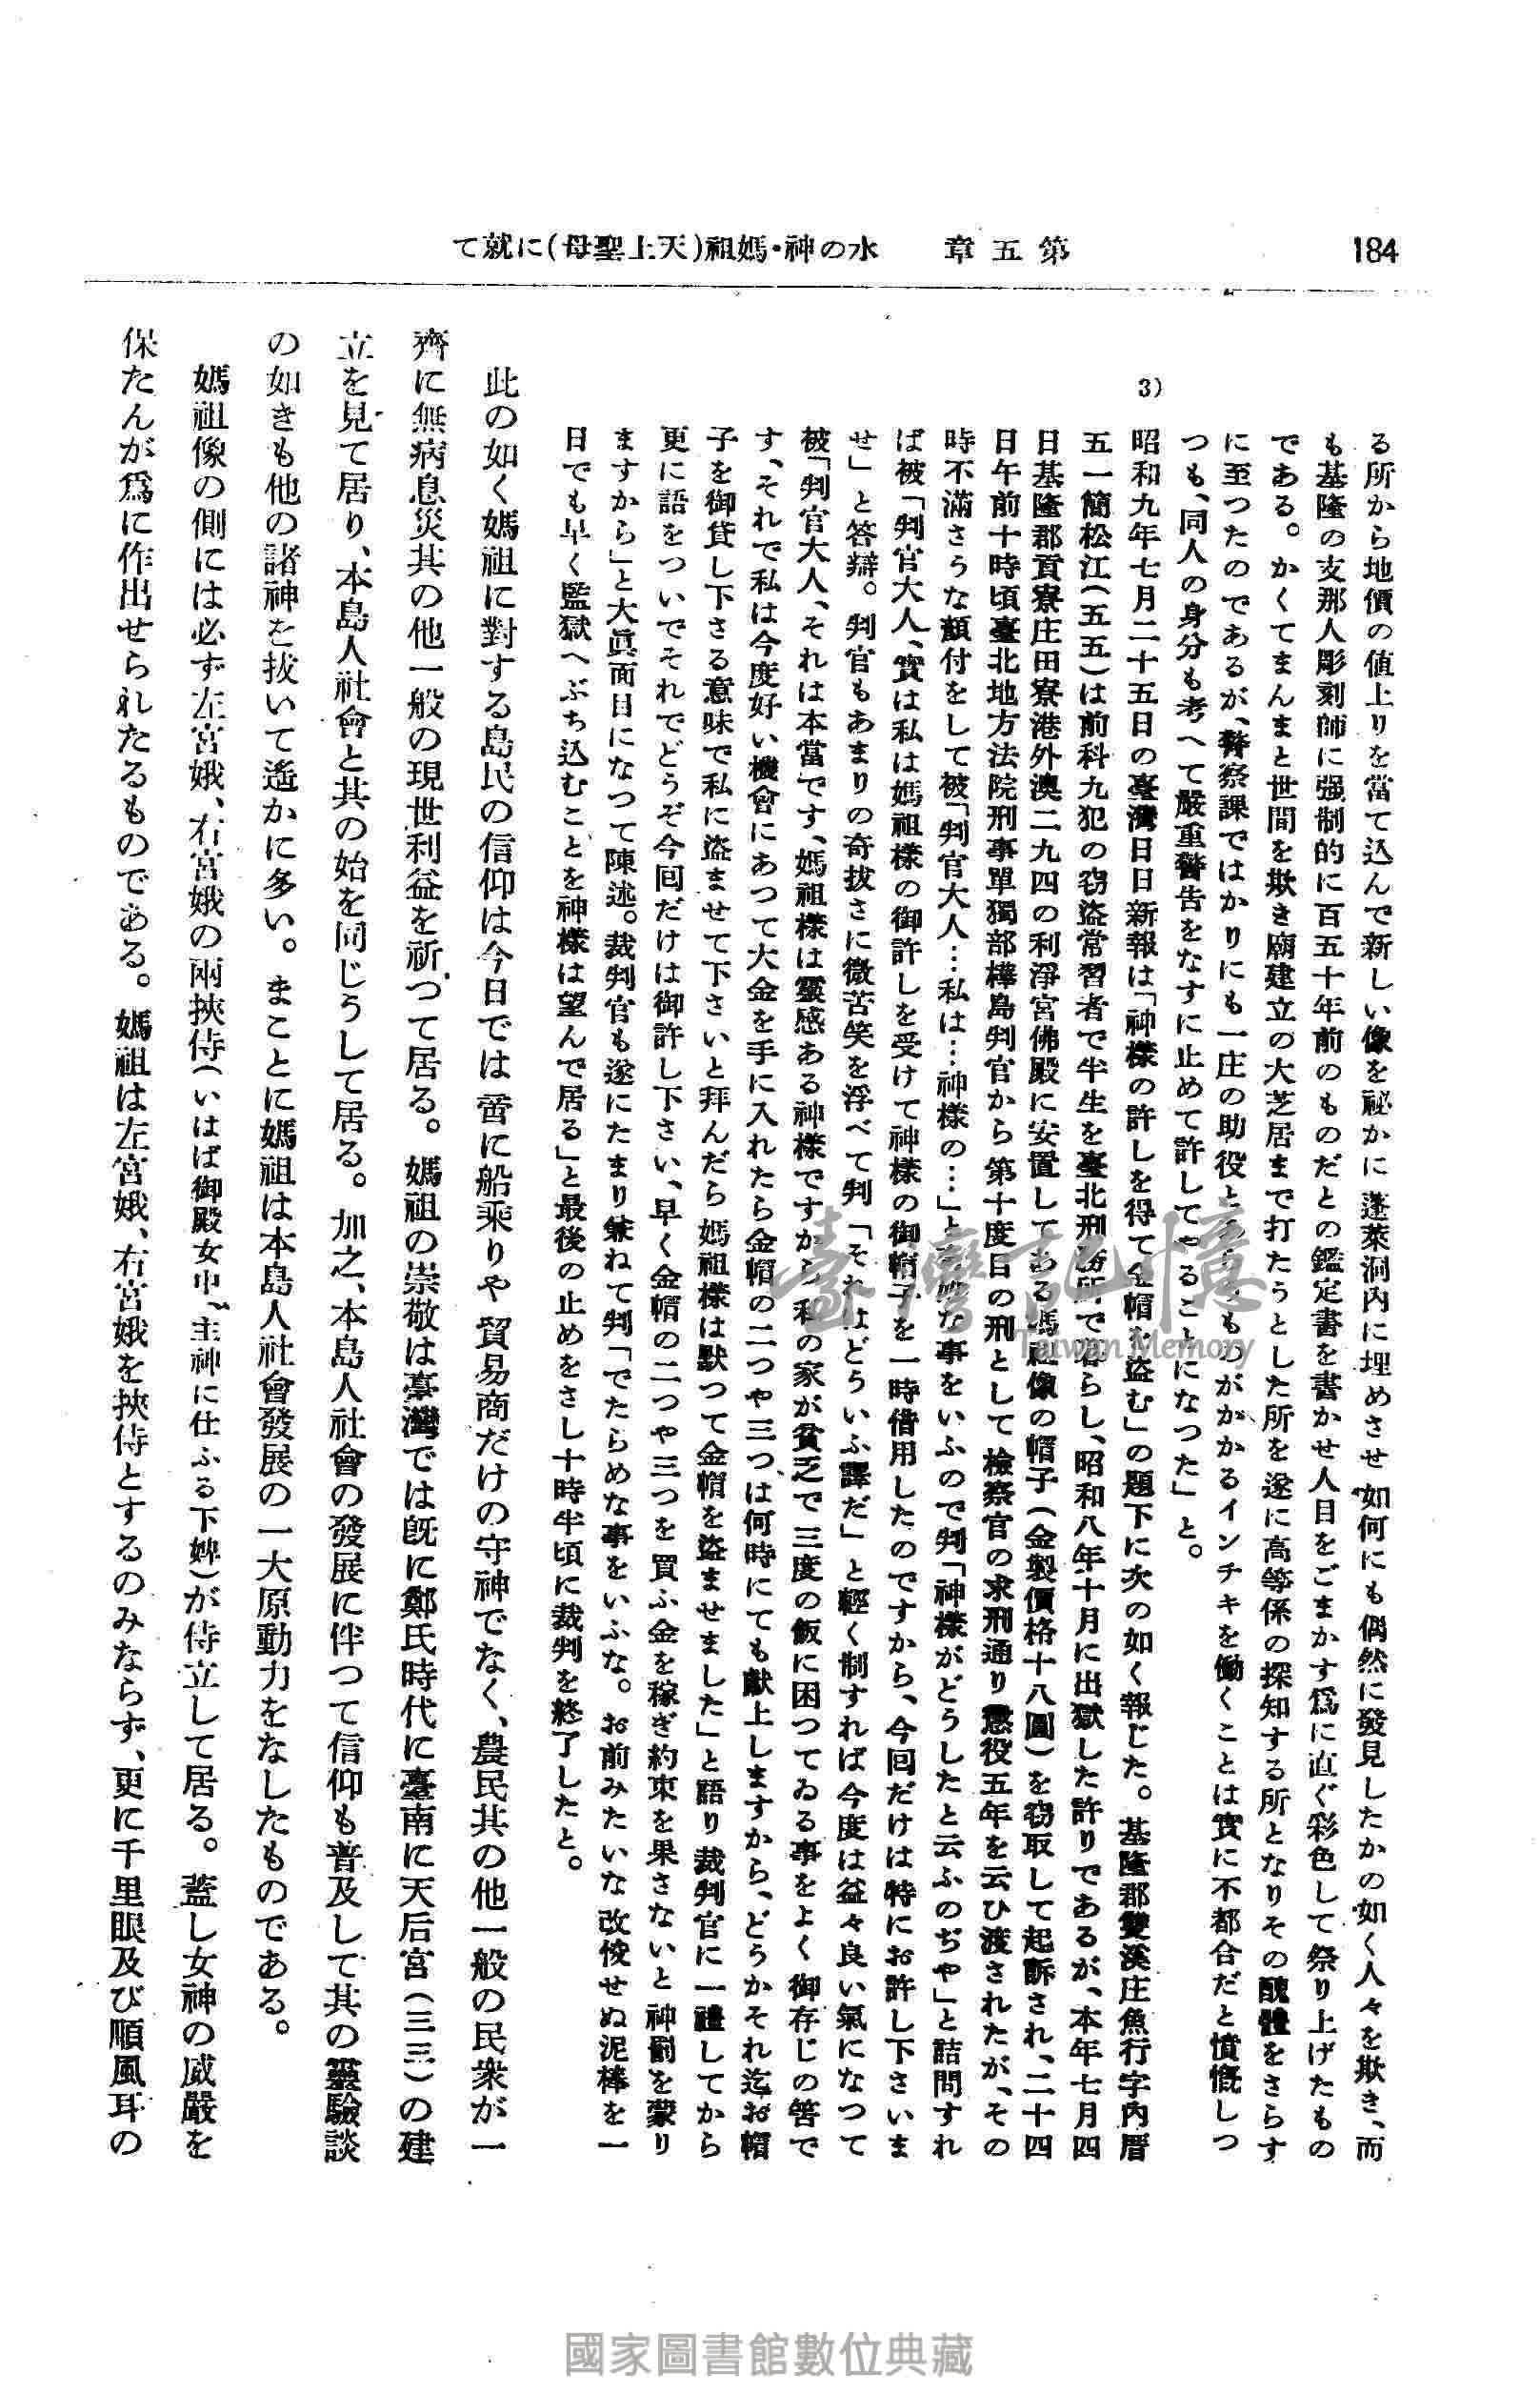 184
第五章　水の神・媽祖(天上聖母)に就て
る所から地價の値上りを當て込んで新しい像を祕かに蓬萊洞内に埋めさせ如何にも偶然に發見したかの如く人々を欺き、而
も基隆の支那人彫刻師に强制的に百五十年前のものだとの鑑定書を書かせ人目をごまかす爲に直ぐ彩色して祭り上げたもの
である。かくてまんまと世間を欺き廟建立の大芝居まで打たうとした所を遂に高等係の探知する所となりその醜體をさらす
に至つたのであるが、警察課ではかりにも一庄の助役ともあらうものがかかるインチキを働くことは實に不都合だと憤慨しつ
つも、同人の身分も考へて嚴重警告をなすに止めて許してやることになつた」と。
3)
昭和九年七月二十五日の臺灣日日新報は「神樣の許しを得て金帽を盜む」の題下に次の如く報じた。基隆郡雙溪庄魚行字内厝
五一簡松江(五五)は前科九犯の窃盜常習者で半生を臺北刑務所で暮らし、昭和八年十月に出獄した許りであるが、本年七月四
日基隆郡貢寮庄田寮港外澳二九四の利淨宮佛殿に安置してある媽祖像の帽子(金製價格十八圓)を窃取して起訴され、二十四
日午前十時頃臺北地方法院刑事單獨部樺島判官から第十度目の刑として檢察官の求刑通り懲役五年を云ひ渡されたが、その
時不滿さうな顏付をして被「判官大人…私は…神樣の…」と な事をいふので判「神樣がどうしたと云ふのぢや」と詰問すれ
ば被「判官大人、實は私は媽祖樣の御許しを受けて神樣の御帽子を一時借用したのですから、今回だけは特にお許し下さいま
せ」と答辯。判官もあまりの奇拔さに微苦笑を浮べて判「それはどういふ譯だ」と輕く制すれば今度は益々良い氣になつて
被「判官大人、それは本當です、媽祖樣は靈感ある神樣ですから私の家が貧乏で三度の飯に困つてゐる事をよく御存じの筈で
す、それで私は今度好い機會にあつて大金を手に入れたら金帽の二つや三つは何時にても獻上しますから、どうかそれ迄お帽
子を御貸し下さる意味で私に盜ませて下さいと拜んだら媽祖樣は默つて金帽を盜ませました」と語り裁判官に一禮してから
更に語をついでそれでどうぞ今回だけは御許し下さい、早く金帽の二つや三つを買ふ金を稼ぎ約束を果さないと神罰を蒙り
ますから」と大眞面目になつて陳述。裁判官も遂にたまり兼ねて判「でたらめな事をいふな。お前みたいな改悛せぬ泥棒を一
日でも早く監獄へぶち込むことを神樣は望んで居る」と最後の止めをさし十時半頃に裁判を終了したと。
此の如く媽祖に對する島民の信仰は今日では啻に船乘りや貿易商だけの守神でなく、農民其の他一般の民衆が一
齊に無病息災其の他一般の現世利益を祈つて居る。媽祖の崇敬は臺灣では既に鄭氏時代に臺南に天后宮(三三)の建
立を見て居り、本島人社會と其の始を同じうして居る。加之、本島人社會の發展に伴つて信仰も普及して其の靈驗談
の如きも他の諸神を拔いて遙かに多い。まことに媽祖は本島人社會發展の一大原動力をなしたものである。
媽祖像の側には必ず左宮娥、右宮娥の兩挾侍(いはば御殿女中、主神に仕ふる下婢)が侍立して居る。蓋し女神の威嚴を
保たんが爲に作出せられたるものである。媽祖は左宮娥、右宮娥を挾侍とするのみならず、更に千里眼及び順風耳の
臺灣記憶
Taiwan Memory
國家圖書館數位典藏